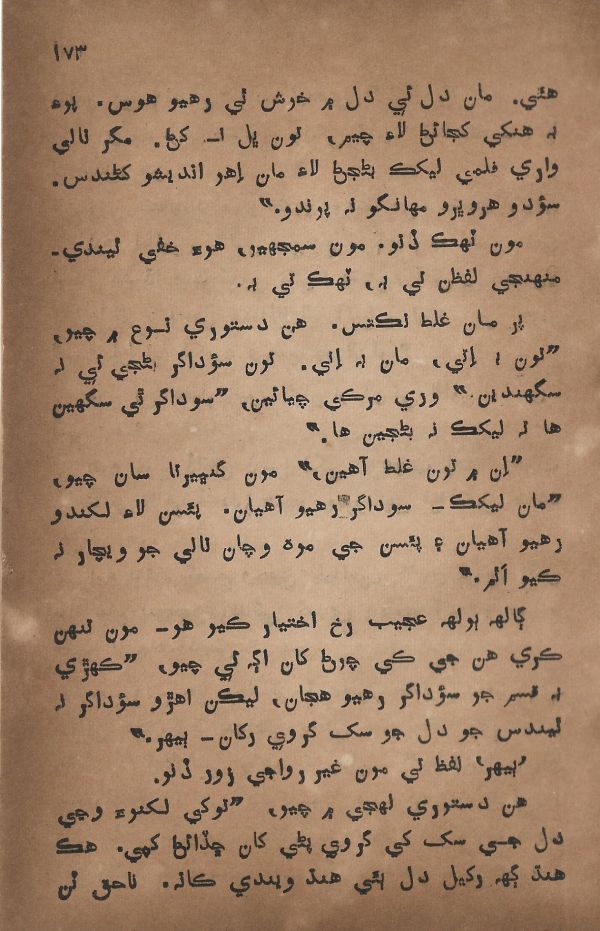 ١٧٣
هئي. مان دل ئي دل ۾ خوش ٿي رهيو هوس. پوءِ
به هنکي کجائڻ لاءِ چيم، تون ڀل نہ ڪر. مگر نالي
واري فلمي ليکڪ بڻجڻ لاءِ مان اهو انديشو کڻندس.
سؤدو هروڀرو مهانگو نه پوندو.”
مون ٽهڪ ڏنو. مون سمجهيو، هوءَ خفي ٿيندي-
منهنجي لفظن تي به، ٽهڪ تي به.
پر مان غلط نڪتس. هن دستوري نوع ۾ چيو،
”تون ۽ اِئي، مان به اِئي. تون سؤداگر بڻجي ئي نه
سگهندين.“ وري مرڪي چيائين، ”سوداگر ٿي سگهين
ها ته ليکڪ نه بڻجين ها.”
”اِن ۾ تون غلط آهين،” مون گنڀيرتا سان چيو،
”مان ليکڪ- سوداگر رهيو آهيان. پئسن لاءِ لکندو
رهيو آهيان ۽ پئسن جي موه وچان نالي جو ويچار نه
ڪيو اٿم.”
ڳالهه ٻولهه عجيب رخ اختيار ڪيو هو- مون تنهن
ڪري هن جي ڪي چوڻ کان اڳ ئي چيو، ”ڪهڙي
به قسم جو سؤداگر رهيو هجان، ليڪن اهڙو سؤداگر نه
ٿيندس جو دل جو سک گروي رکان- ٻيهر.”
’ٻيهر‘ لفظ تي مون غير رواجي زور ڏنو.
هن دستوري لهجي ۾ چيو، ”توکي لکنوءَ وڃي
دل جي سک کي گروي پڻي کان ڇڏائڻ کپي. هڪ
هنڌ ڳهه رکيل دل ٻئي هنڌ ويندي ڪانه. ناحق تن